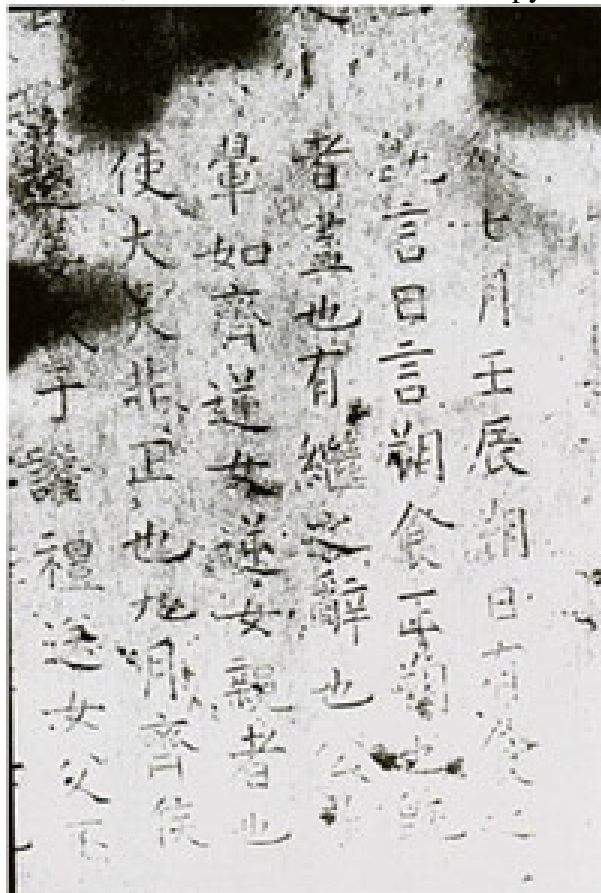 秋七月壬辰朔日有食之
既言日言朔食正朔也既
者盡也有繼之辭也公子
翬如齊逆女逆女親者也
使大夫非正也九月齊侯
送于讙禮送女父不